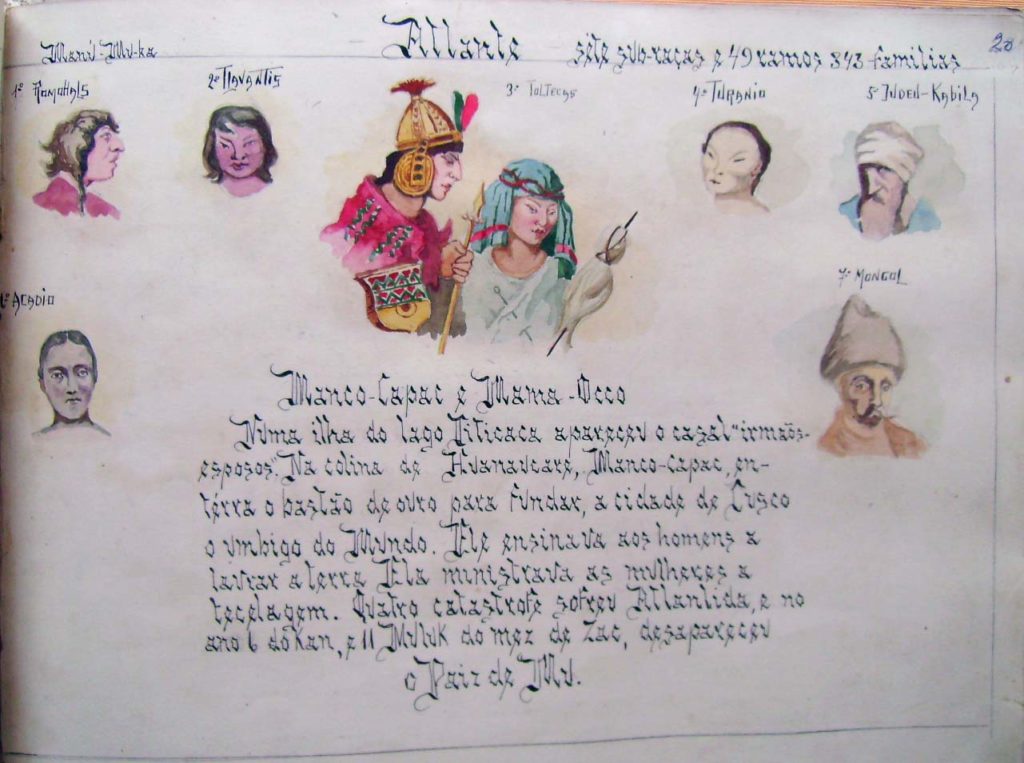 Manú-Mu-ka
Atlante
sete sub-raças e 49 ramos 343 familias
20
1º Romohals
2º Tlavantis
3º Toltecas
4º Turanio
5º Judeu-Kabila
º Acadio
7º Mongol
Manco-Capac e Mama-Occo
Numa ilha do lago Titicaca apareceu o casal "irmãos-
esposos". Na colina de Huanaucare, Manco-Capac, en-
térra o bastão de ouro para fundar, a cidade de Cusco
o umbigo do Mundo. Ele ensinava aos homens a
lavrar a terra Ela ministrava as mulheres a
tecelagem. Quatro catastrofe sofreu Atlantida, e no
ano 6 do Kan, e 11 Muluk do mez de Zac, desapareceu
o Paiz de Mu.